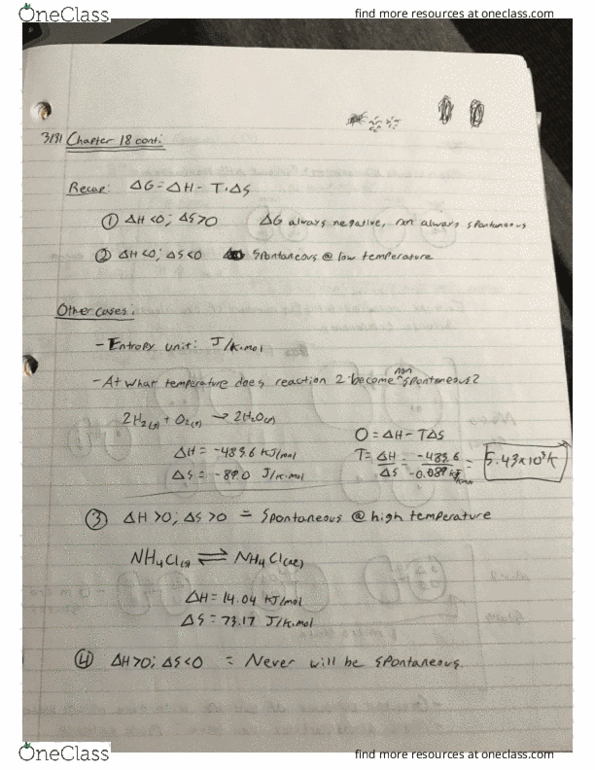 OneClass
find more resources at oneclass.com
3/31 Chapter 18 cont:
Recap: ΔG = ΔH - T·ΔS
① ΔH <0; ΔS >0 ΔG always negative, rxn always spontaneous
② ΔH <0; ΔS <0 Spontaneous @ low temperature
Other cases:
- Entropy unit: J/K·mol
- At what temperature does reaction 2 become non spontaneous?
2H₂(g) + O₂(g) → 2H₂O(g)
ΔH = -483.6 kJ/mol
ΔS = -89.0 J/K·mol
O = ΔH - TΔS
T = ΔH/ΔS = -483.6/-0.089 kJ/K·mol = 5.43x10³K
③ ΔH >0; ΔS >0 = Spontaneous @ high temperature
NH₄Cl(s) ⇌ NH₄Cl(aq)
ΔH = 14.04 kJ/mol
ΔS = 73.17 J/K·mol
④ ΔH >0; ΔS <0 = Never will be spontaneous.
OneClass
find more resources at oneclass.com